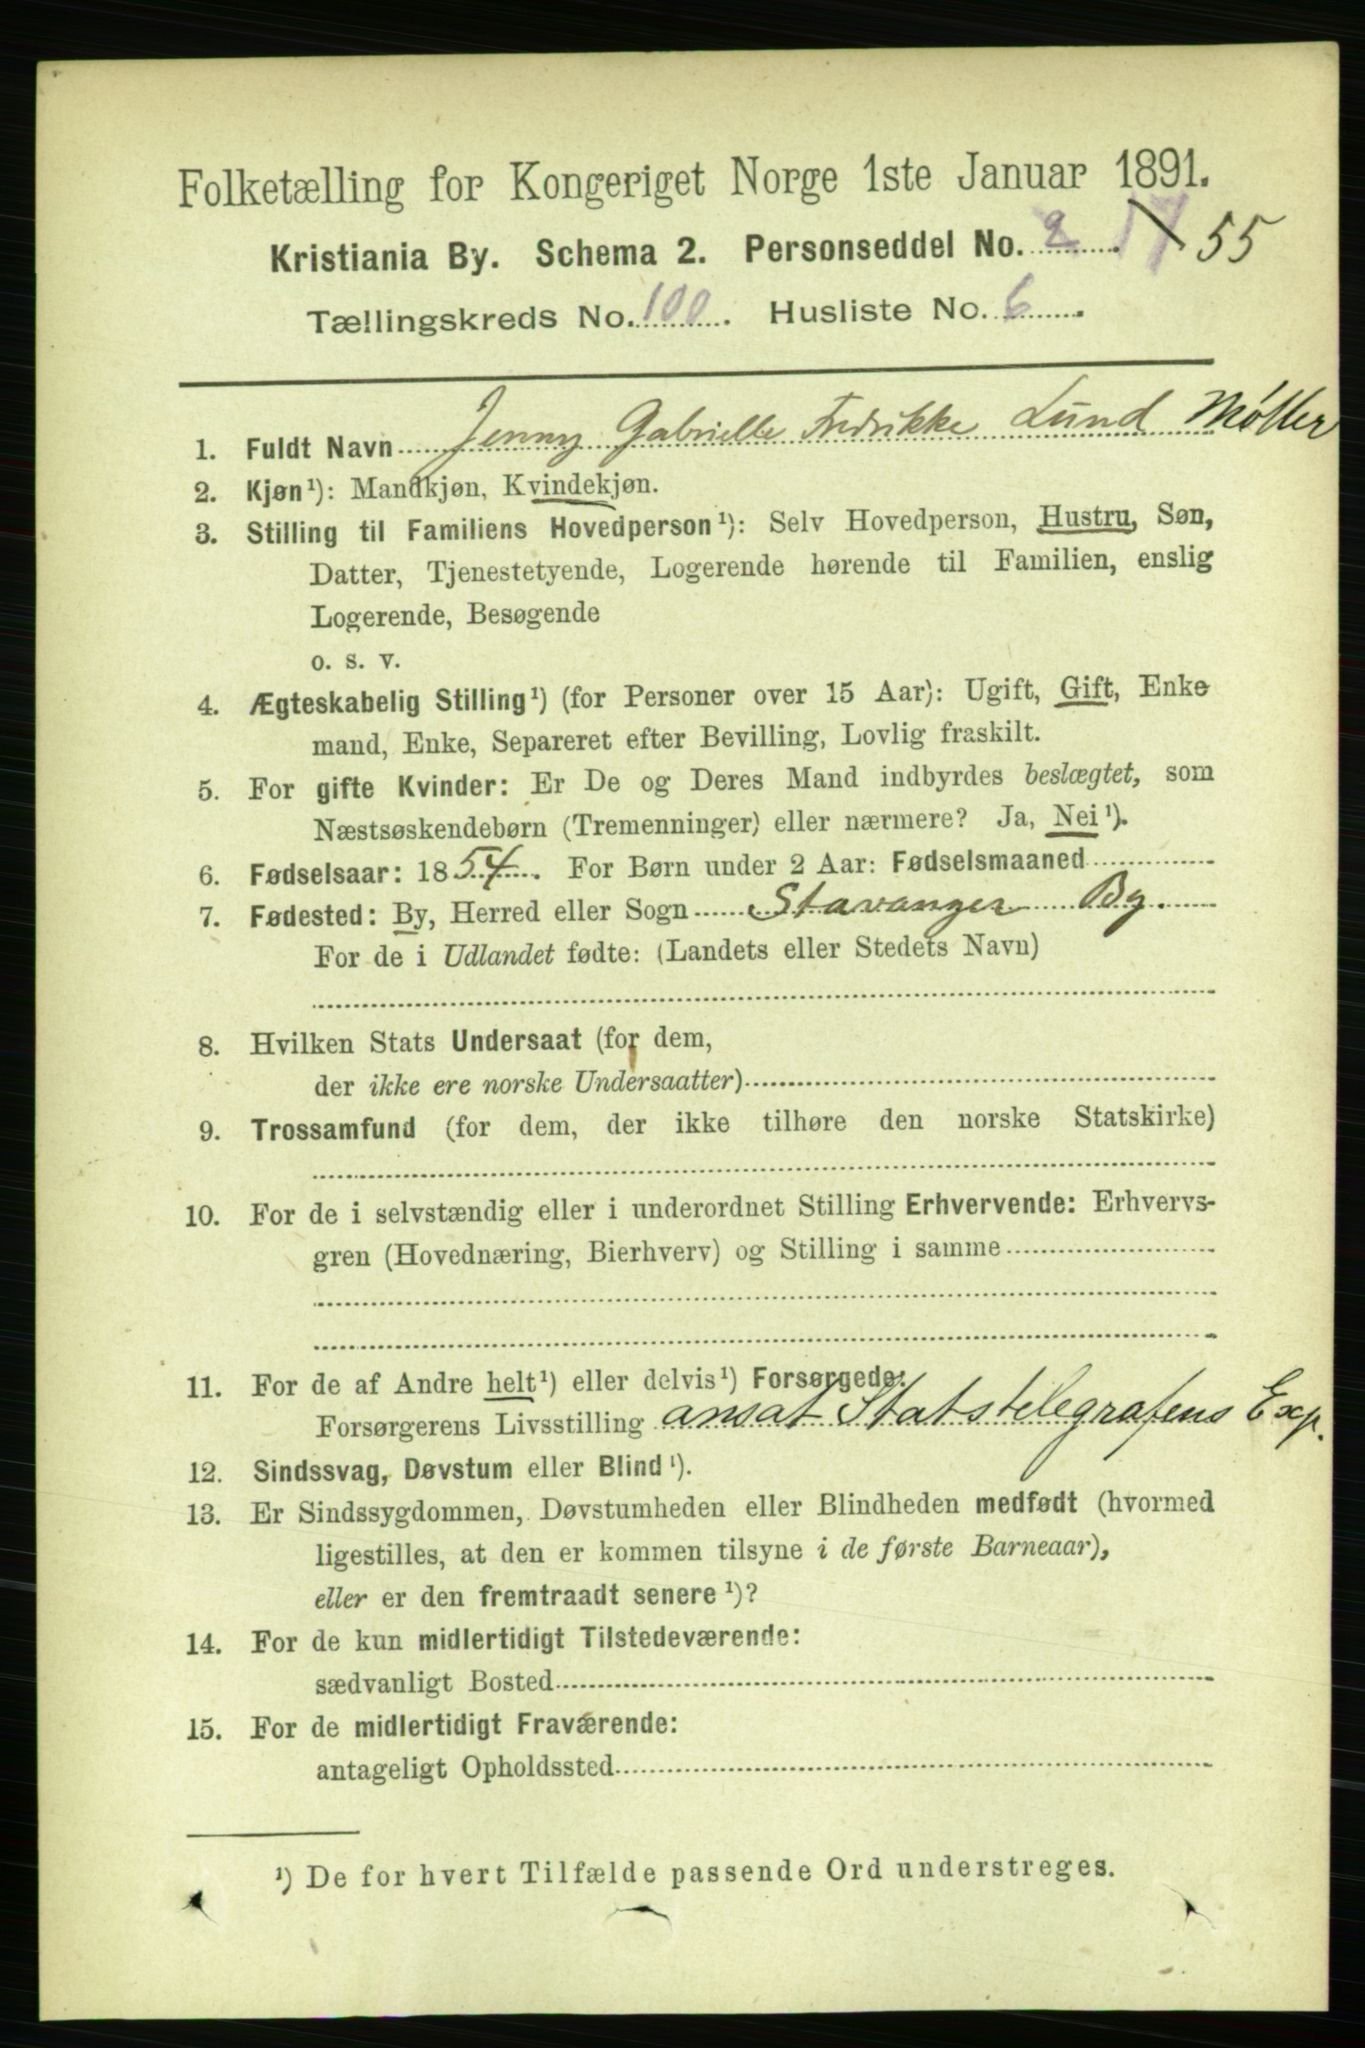 Folketælling for Kongeriget Norge 1ste Januar 1891.
Kristiania By. Schema 2. Personseddel No. 2 55
Tællingskreds No. 100. Husliste No. 6
1. Fuldt Navn Jenny Gabrielle Fredrikke Lund Møller
2. Kjøn¹): Mandkjøn, Kvindekjøn.
3. Stilling til Familiens Hovedperson¹): Selv Hovedperson, Hustru, Søn,
Datter, Tjenestetyende, Logerende hørende til Familien, enslig
Logerende, Besøgende
o. s. v.
4. Ægteskabelig Stilling¹) (for Personer over 15 Aar): Ugift, Gift, Enke
mand, Enke, Separeret efter Bevilling, Lovlig fraskilt.
5. For gifte Kvinder: Er De og Deres Mand indbyrdes beslægtet, som
Næstsøskendebørn (Tremenninger) eller nærmere? Ja, Nei¹).
6. Fødselsaar: 1854. For Børn under 2 Aar: Fødselsmaaned
7. Fødested: By, Herred eller Sogn Stavanger By.
For de i Udlandet fødte: (Landets eller Stedets Navn)
8. Hvilken Stats Undersaat (for dem,
der ikke ere norske Undersaatter)
9. Trossamfund (for dem, der ikke tilhøre den norske Statskirke)
10. For de i selvstændig eller i underordnet Stilling Erhvervende: Erhvervs-
gren (Hovednæring, Bierhverv) og Stilling i samme
11. For de af Andre helt¹) eller delvis¹) Forsørgede:
Forsørgerens Livsstilling ansat Statstelegrafens Exp.
12. Sindssvag, Døvstum eller Blind¹).
13. Er Sindssygdommen, Døvstumheden eller Blindheden medfødt (hvormed
ligestilles, at den er kommen tilsyne i de første Barneaar),
eller er den fremtraadt senere¹)?
14. For de kun midlertidigt Tilstedeværende:
sædvanligt Bosted
15. For de midlertidigt Fraværende:
antageligt Opholdssted
¹) De for hvert Tilfælde passende Ord understreges.